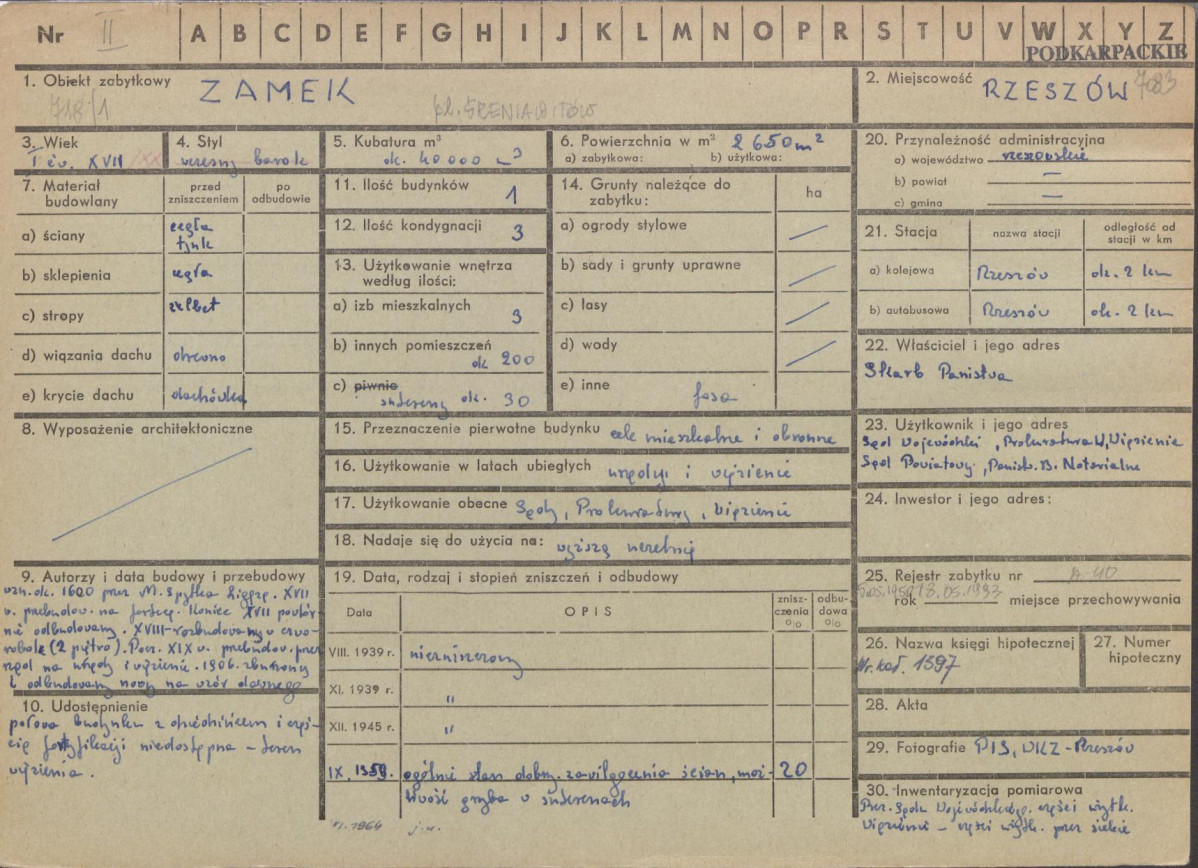 Nr II A B C D E F G H I J K L M N O P R S T U V W X Y Z
PODKARPACKIE
1. Obiekt zabytkowy ZAMEK
718/1 pl. ŚRENIAWITÓW
2. Miejscowość RZESZÓW 7083
3. Wiek
I ćw. XVII /XX
4. Styl
wczesny barok
5. Kubatura m³
ok. 40000 m³
6. Powierzchnia w m² 2650 m²
a) zabytkowa: b) użytkowa:
7. Materiał budowlany
przed zniszczeniem
po odbudowie
a) ściany cegła tynk
b) sklepienia cegła
c) stropy żelbet
d) wiązania dachu drewno
e) krycie dachu dachówka
8. Wyposażenie architektoniczne
9. Autorzy i data budowy i przebudowy
wzn. ok. 1600 przez M. Spytka Ligęzę. XVII
w. przebudow. na fortecę. Koniec XVII powtór-
nie odbudowany. XVIII-rozbudowany w czwo-
robok (2 piętro). Pocz. XIX w. przebudow. przez
rząd na urzędy i więzienie. 1906. zburzony
i odbudowany nowy na wzór dawnego
10. Udostępnienie
połowa budynku z dziedzińcem i częś-
cią fortyfikacji niedostępna – teren
więzienia.
11. Ilość budynków 1
12. Ilość kondygnacji 3
13. Użytkowanie wnętrza
według ilości:
a) izb mieszkalnych 3
b) innych pomieszczeń
ok 200
c) piwnic
sutereny ok. 30
14. Grunty należące do
zabytku: ha
a) ogrody stylowe
b) sady i grunty uprawne
c) lasy
d) wody
e) inne fosa
15. Przeznaczenie pierwotne budynku cele mieszkalne i obronne
16. Użytkowanie w latach ubiegłych urzędy i więzienie
17. Użytkowanie obecne Sądy, Prokuratury, Więzienie
18. Nadaje się do użycia na: wyższą uczelnię
19. Data, rodzaj i stopień zniszczeń i odbudowy
Data OPIS znisz-czenia o/o odbu-dowa o/o
VIII. 1939 r. niezniszczony
XI. 1939 r. "
XII. 1945 r. "
IX, 1959. ogólnie stan dobry. zawilgocenia ścian, moż- 20
liwość grzyba w suterenach
VI. 1964 j.w.
20. Przynależność administracyjna
a) województwo rzeszowskie
b) powiat —
c) gmina —
21. Stacja nazwa stacji odległość od stacji w km
a) kolejowa Rzeszów ok. 2 km
b) autobusowa Rzeszów ok. 2 km
22. Właściciel i jego adres
Skarb Państwa
23. Użytkownik i jego adres
Sąd Wojewódzki, Prokuratura W, Więzienie
Sąd Powiatowy, Państw. B. Notarialne
24. Inwestor i jego adres:
25. Rejestr zabytku nr A-40
rok 13.05.1993 miejsce przechowywania
26. Nazwa księgi hipotecznej
Nr. kat. 1597
27. Numer
hipoteczny
28. Akta
29. Fotografie PIS, WKZ-Rzeszów
30. Inwentaryzacja pomiarowa
części użytk.
Więzienie – części użytk. przez siebie